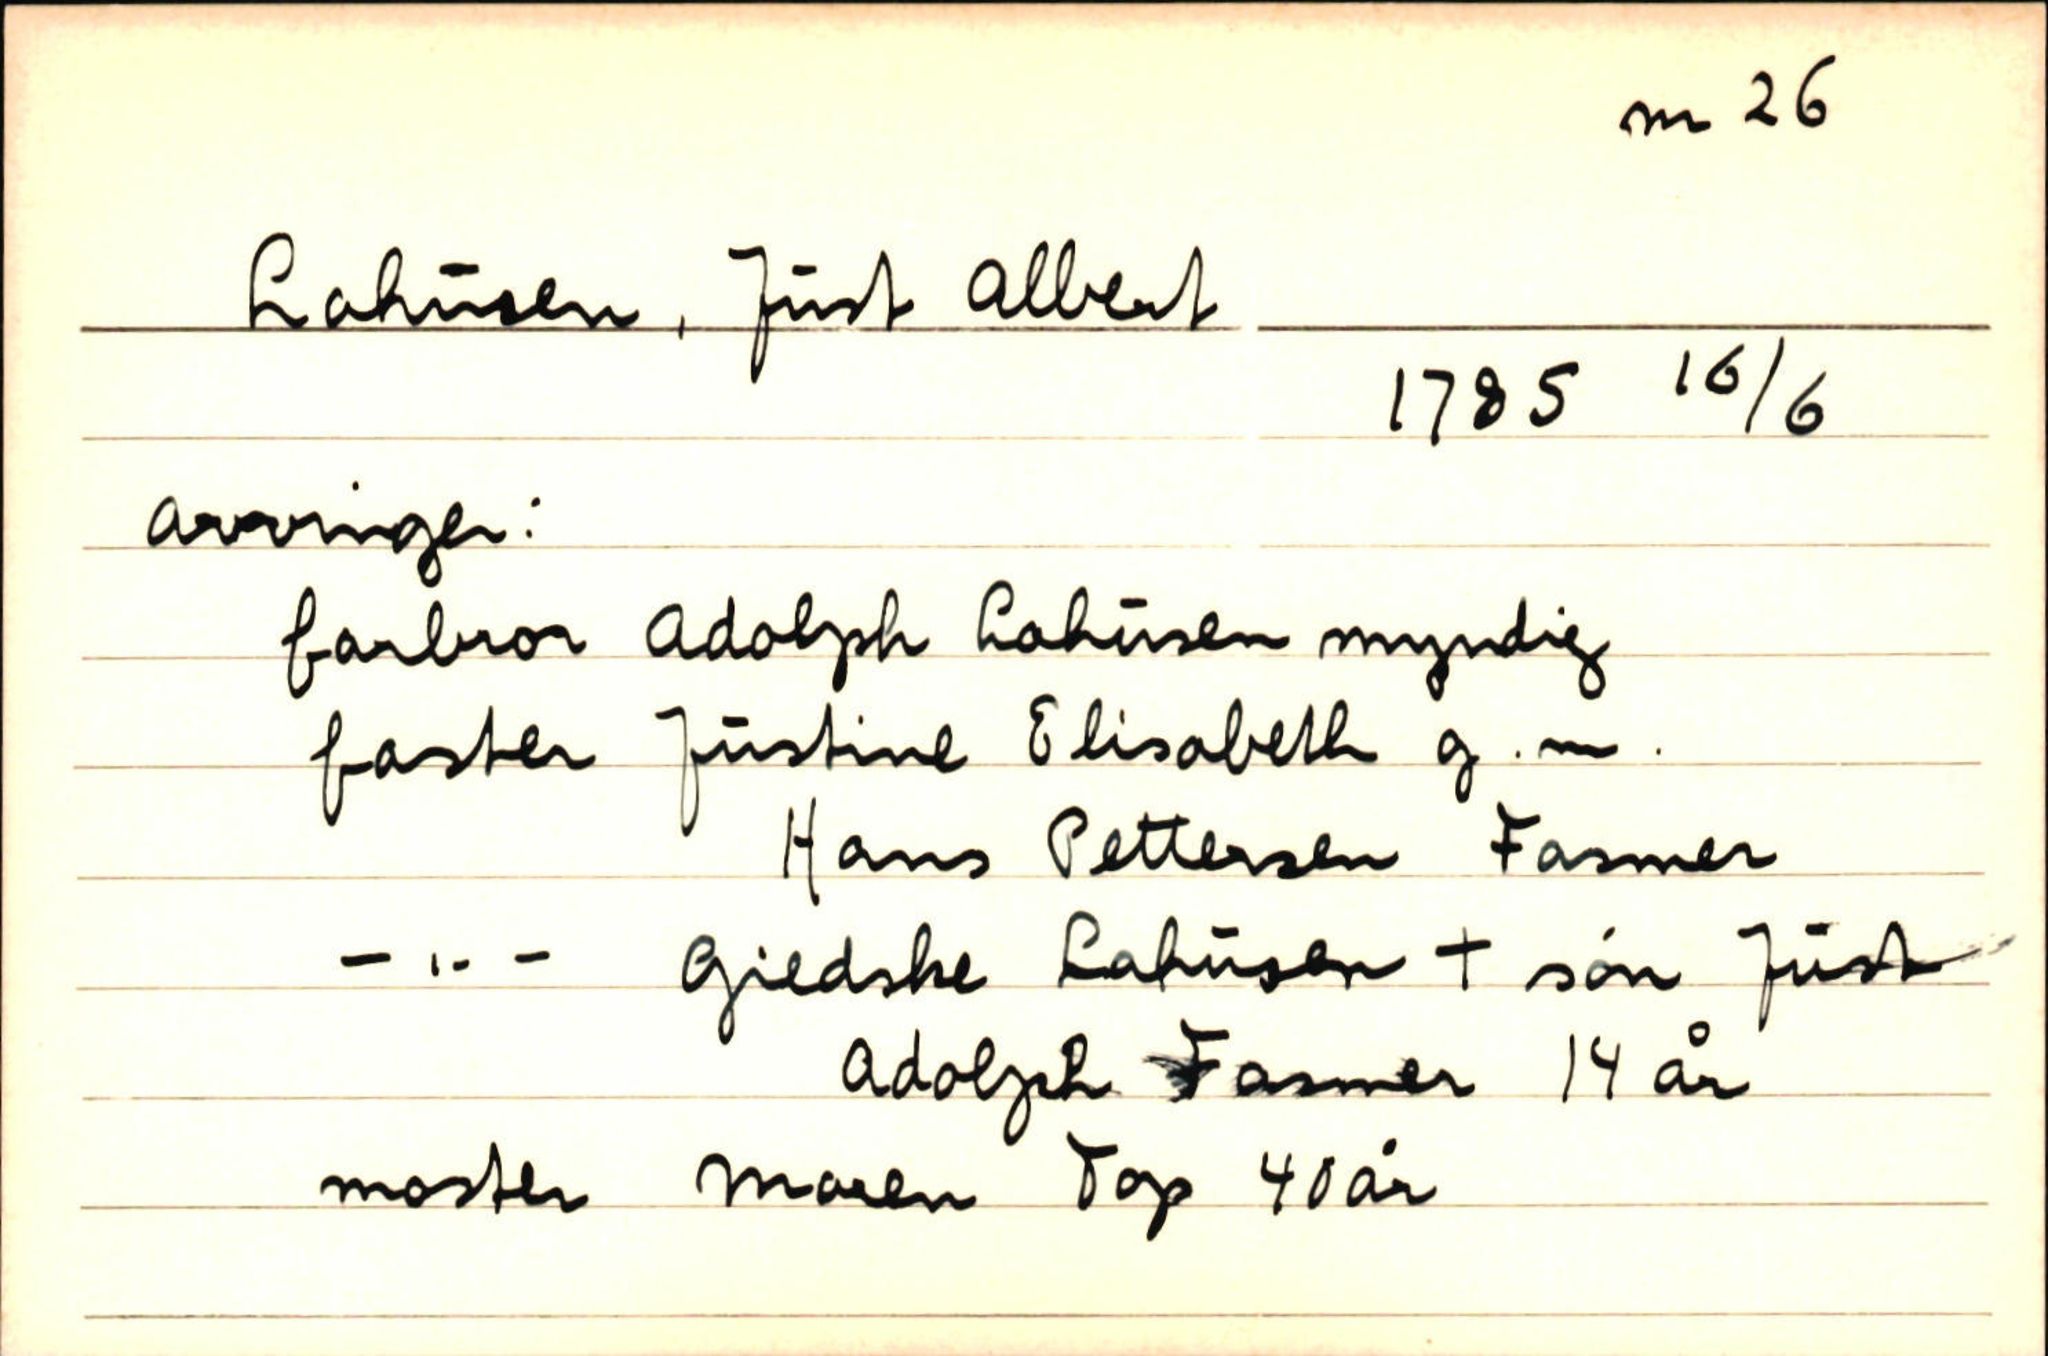 m 26
Lahusen, Just Albert
1785 16/6
arvinger:
farbror Adolph Lahusen myndig
faster Justine Elisabeth g.m.
Hans Pettersen Fasmer
-"- Giedske Lahusen + søn Just
Adolph Fasmer 14 år
moster Maren Top 40 år